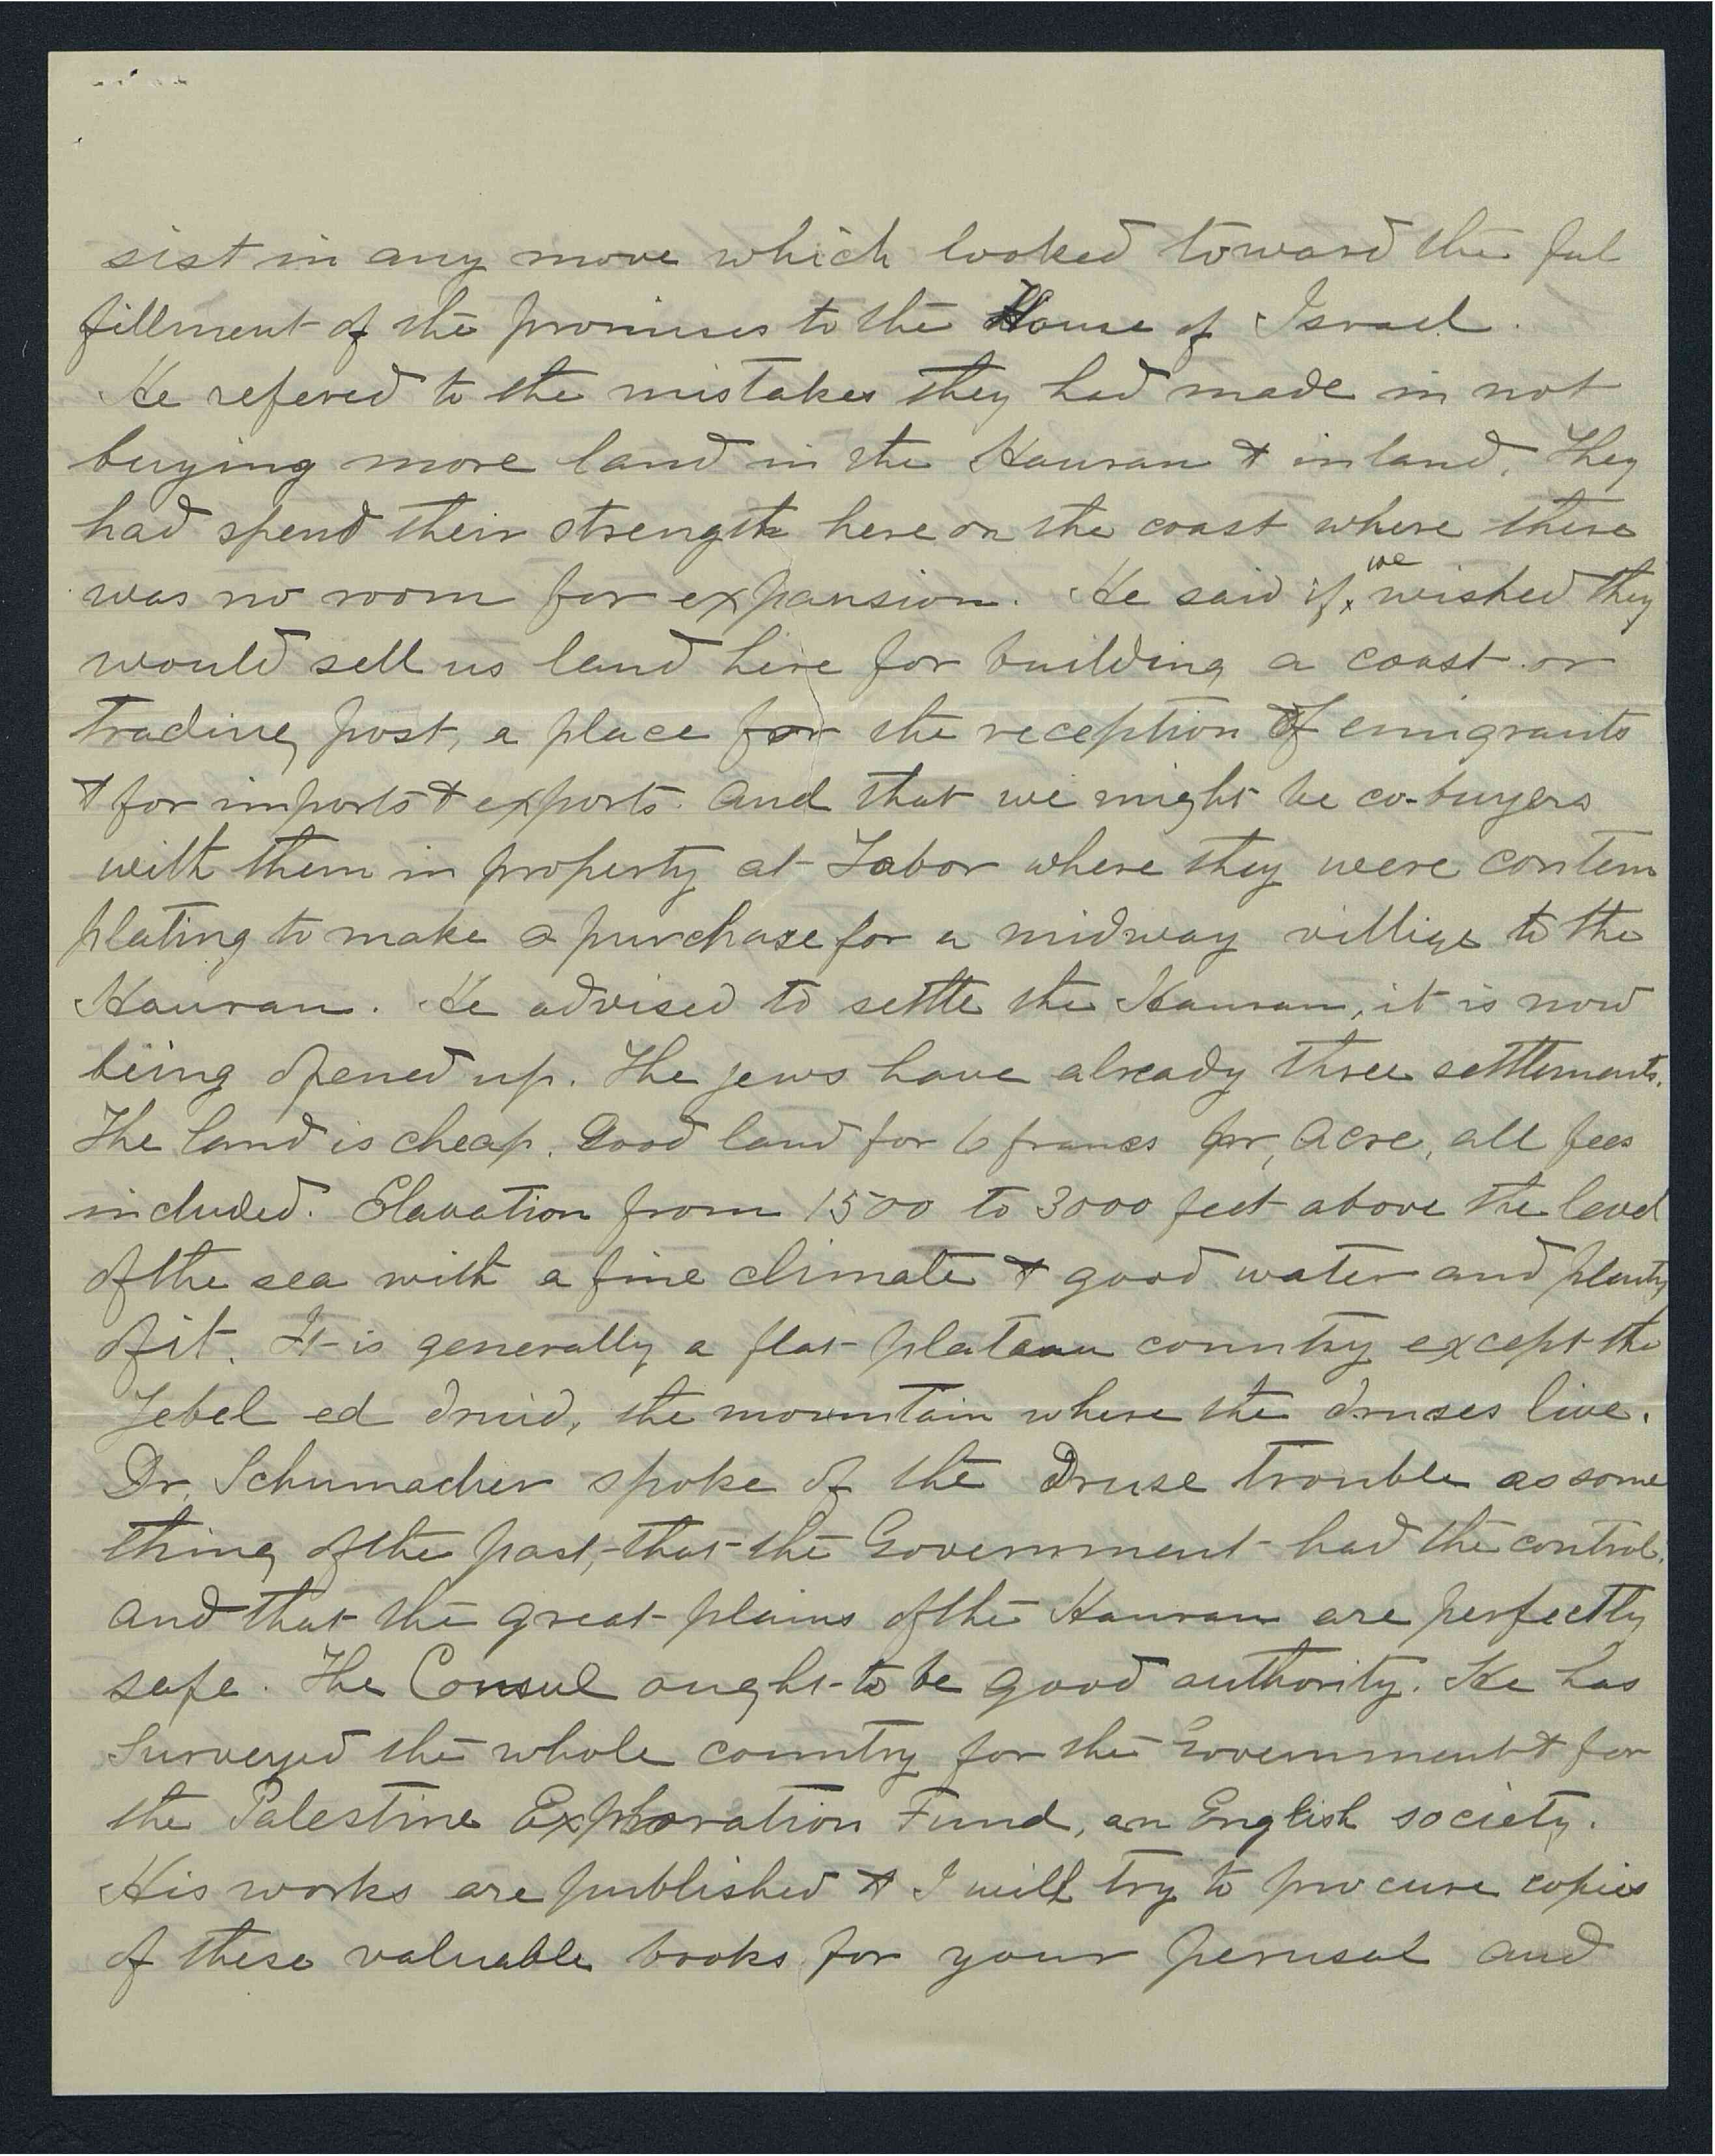 sist in any move which looked toward the ful
fillment of the promises to the House of Israel.
He refered to the mistakes they had made in not
buying more land in the Hauran & inland. They
had spend their strength here on the coast where there
was no room for expansion. He said if we wished they
would sell us land here for building a coast or
trading post, a place for the reception of emigrants
& for imports & exports. And that we might be co-buyers
with them in property at Tabor where they were contem
plating to make a purchase for a midway villige to the
Hauran. He advised to settle the Hauran, it is now
being opened up. The jews have already three settlements.
The land is cheap. Good land for 6 francs pr, Acre, all fees
included. Elavation from 1500 to 3000 feet above the level
of the sea with a fine climate & good water and plenty
of it. It is generally a flat plateau country except the
Jebel ed druid, the mountain where the druses live.
Dr. Schumacher spoke of the Druse trouble as some
thing of the past, that the Government had the control.
and that the great plains of the Hauran are perfectly
safe. The Consul ought to be good authority. He has
Surveyed the whole country for the Government & for
the Palestine Exploration Fund, an English society.
His works are published & I will try to procure copies
of these valuable books for your perusal and